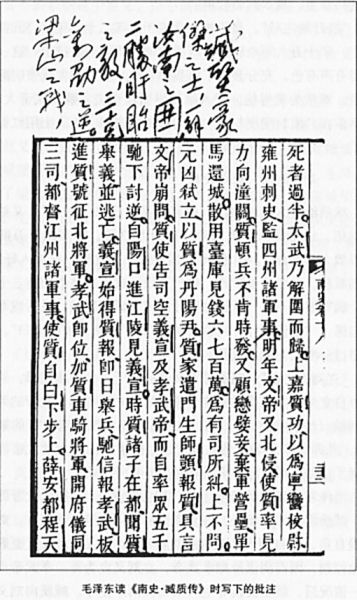 臧質豪
傑之士,一解
汝南之围
二勝盱眙
之敌,三克
劉劭
梁山 戰
南史
死者過半太武乃解圍而歸上嘉質功以為寧蠻校尉
雍州刺史監四州諸軍事明年文帝又北侵使質率見
力向潼關質頓兵不肯時發又顧戀嬖妾棄軍營壘單
馬還城散用臺庫見錢六七百萬為有司所糾上不問
元凶弒立以質為丹陽尹質家遣門生師顗報質具言
文帝崩問質使告司空義宣及孝武帝而自率眾五千
馳下討逆自陽口進江陵見義宣時質諸子在都聞質
舉義並逃亡義宣始得質報即日舉兵馳信報孝武板
進質號征北將軍孝武即位加質車騎將軍開府儀同
三司都督江州諸軍事使質自白下步上薛安都程天
毛泽东读《南史·臧质传》时写下的批注